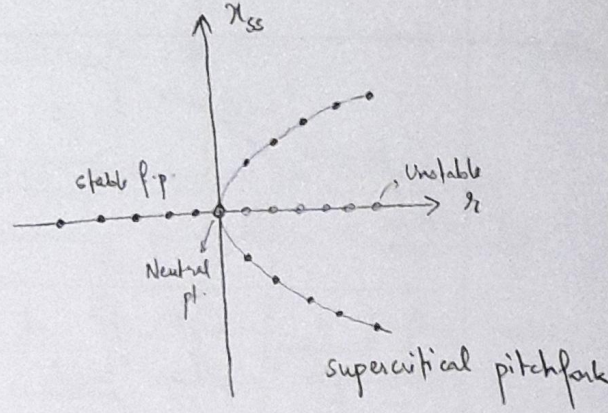 x_ss
stable f.p.
Unstable
r
Neutral
pt.
supercritical pitchfork